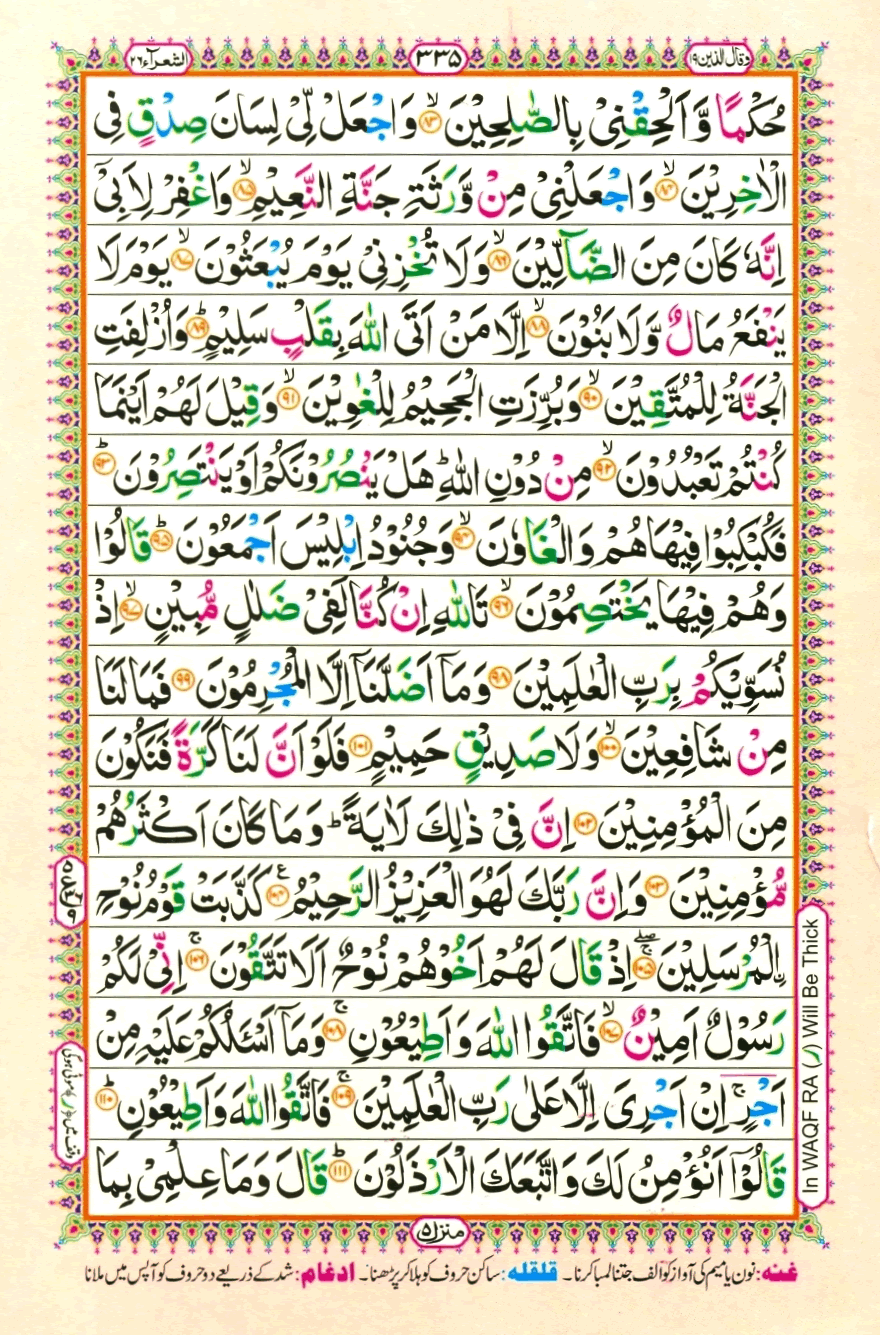 وقال الذین ۱۹
۳۳۵
الشعرآء ۲۶
حُکۡمًا وَّ اَلۡحِقۡنِیۡ بِالصّٰلِحِیۡنَ ﴿ۙ۸۳﴾ وَ اجۡعَلۡ لِّیۡ لِسَانَ صِدۡقٍ فِی
الۡاٰخِرِیۡنَ ﴿ۙ۸۴﴾ وَ اجۡعَلۡنِیۡ مِنۡ وَّرَثَۃِ جَنَّۃِ النَّعِیۡمِ ﴿ۙ۸۵﴾ وَ اغۡفِرۡ لِاَبِیۡۤ
اِنَّہٗ کَانَ مِنَ الضَّآلِّیۡنَ ﴿ۙ۸۶﴾ وَ لَا تُخۡزِنِیۡ یَوۡمَ یُبۡعَثُوۡنَ ﴿ۙ۸۷﴾ یَوۡمَ لَا
یَنۡفَعُ مَالٌ وَّ لَا بَنُوۡنَ ﴿ۙ۸۸﴾ اِلَّا مَنۡ اَتَی اللّٰہَ بِقَلۡبٍ سَلِیۡمٍ ﴿ؕ۸۹﴾ وَ اُزۡلِفَتِ
الۡجَنَّۃُ لِلۡمُتَّقِیۡنَ ﴿ۙ۹۰﴾ وَ بُرِّزَتِ الۡجَحِیۡمُ لِلۡغٰوِیۡنَ ﴿ۙ۹۱﴾ وَ قِیۡلَ لَہُمۡ اَیۡنَمَا
کُنۡتُمۡ تَعۡبُدُوۡنَ ﴿ۙ۹۲﴾ مِنۡ دُوۡنِ اللّٰہِ ؕ ہَلۡ یَنۡصُرُوۡنَکُمۡ اَوۡ یَنۡتَصِرُوۡنَ ﴿ؕ۹۳﴾
فَکُبۡکِبُوۡا فِیۡہَا ہُمۡ وَ الۡغَاوٗنَ ﴿ۙ۹۴﴾ وَ جُنُوۡدُ اِبۡلِیۡسَ اَجۡمَعُوۡنَ ﴿ؕ۹۵﴾ قَالُوۡا
وَ ہُمۡ فِیۡہَا یَخۡتَصِمُوۡنَ ﴿ۙ۹۶﴾ تَاللّٰہِ اِنۡ کُنَّا لَفِیۡ ضَلٰلٍ مُّبِیۡنٍ ﴿ۙ۹۷﴾ اِذۡ
نُسَوِّیۡکُمۡ بِرَبِّ الۡعٰلَمِیۡنَ ﴿۹۸﴾ وَ مَاۤ اَضَلَّنَاۤ اِلَّا الۡمُجۡرِمُوۡنَ ﴿۹۹﴾ فَمَا لَنَا
مِنۡ شَافِعِیۡنَ ﴿ۙ۱۰۰﴾ وَ لَا صَدِیۡقٍ حَمِیۡمٍ ﴿۱۰۱﴾ فَلَوۡ اَنَّ لَنَا کَرَّۃً فَنَکُوۡنَ
مِنَ الۡمُؤۡمِنِیۡنَ ﴿۱۰۲﴾ اِنَّ فِیۡ ذٰلِکَ لَاٰیَۃً ؕ وَ مَا کَانَ اَکۡثَرُہُمۡ
مُّؤۡمِنِیۡنَ ﴿۱۰۳﴾ وَ اِنَّ رَبَّکَ لَہُوَ الۡعَزِیۡزُ الرَّحِیۡمُ ﴿۱۰۴﴾ ع کَذَّبَتۡ قَوۡمُ نُوۡحِ
ۣالۡمُرۡسَلِیۡنَ ﴿ۚۖ۱۰۵﴾ اِذۡ قَالَ لَہُمۡ اَخُوۡہُمۡ نُوۡحٌ اَلَا تَتَّقُوۡنَ ﴿ۚ۱۰۶﴾ اِنِّیۡ لَکُمۡ
رَسُوۡلٌ اَمِیۡنٌ ﴿ۙ۱۰۷﴾ فَاتَّقُوا اللّٰہَ وَ اَطِیۡعُوۡنِ ﴿ۚ۱۰۸﴾ وَ مَاۤ اَسۡـَٔلُکُمۡ عَلَیۡہِ مِنۡ
اَجۡرٍ ۚ اِنۡ اَجۡرِیَ اِلَّا عَلٰی رَبِّ الۡعٰلَمِیۡنَ ﴿ۚ۱۰۹﴾ فَاتَّقُوا اللّٰہَ وَ اَطِیۡعُوۡنِ ﴿ؕ۱۱۰﴾
قَالُوۡۤا اَنُؤۡمِنُ لَکَ وَ اتَّبَعَکَ الۡاَرۡذَلُوۡنَ ﴿ؕ۱۱۱﴾ قَالَ وَ مَا عِلۡمِیۡ بِمَا
In WAQF RA (ر) Will Be Thick
منزل ۵
غنہ: نون یا میم کی آواز کو الف جتنا لمبا کرنا۔ قلقلہ: ساکن حروف کو ہلا کر پڑھنا۔ ادغام: شد کے ذریعے دو حروف کو آپس میں ملانا